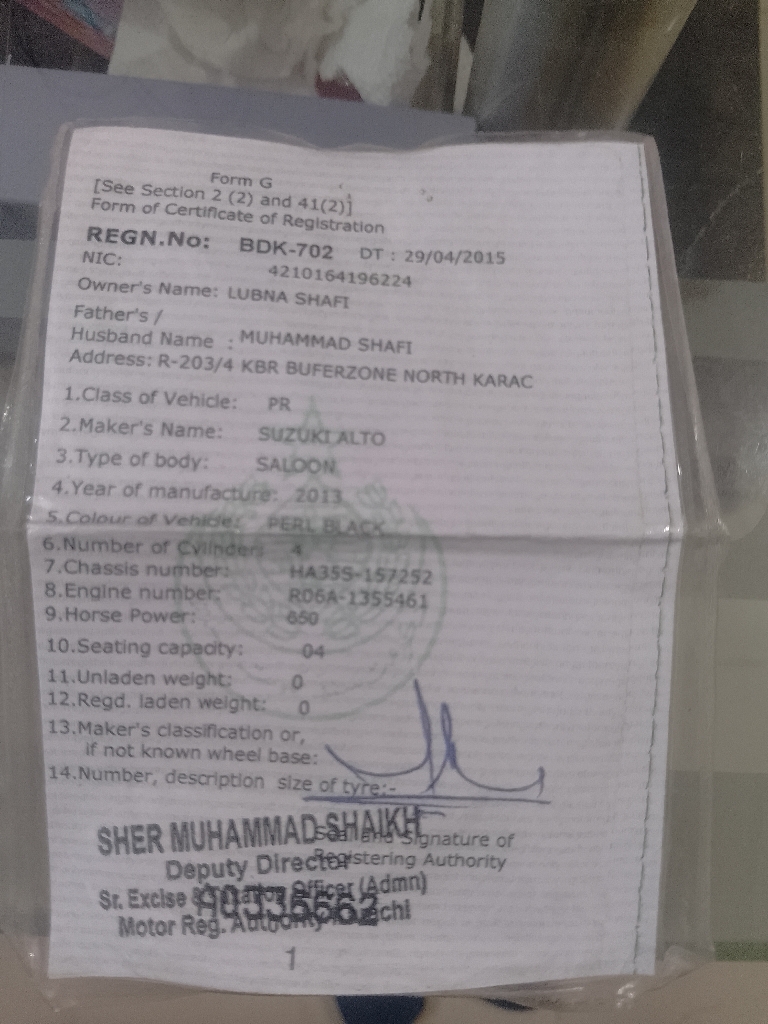 Form G
[See Section 2 (2) and 41(2)]
Form of Certificate of Registration
REGN.No: BDK-702 DT : 29/04/2015
NIC: 4210164196224
Owner's Name: LUBNA SHAFI
Father's /
Husband Name : MUHAMMAD SHAFI
Address: R-203/4 KBR BUFERZONE NORTH KARAC
1.Class of Vehicle: PR
2.Maker's Name: SUZUKI ALTO
3.Type of body: SALOON
4.Year of manufacture: 2013
5.Colour of Vehicle: PERL BLACK
6.Number of Cylinder: 4
7.Chassis number: HA35S-157252
8.Engine number: R06A-1355461
9.Horse Power: 650
10.Seating capacity: 04
11.Unladen weight: 0
12.Regd. laden weight: 0
13.Maker's classification or,
if not known wheel base:
14.Number, description size of tyre:-
SHER MUHAMMAD SHAIKH
Seal and Signature of
Deputy Director
Registering Authority
Sr. Excise Officer (Admn)
Motor Reg. Authority
1